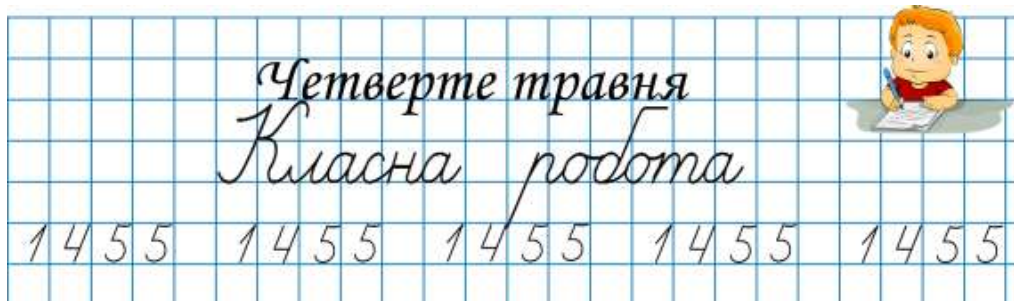 Четверте травня
Класна робота
1455 1455 1455 1455 1455